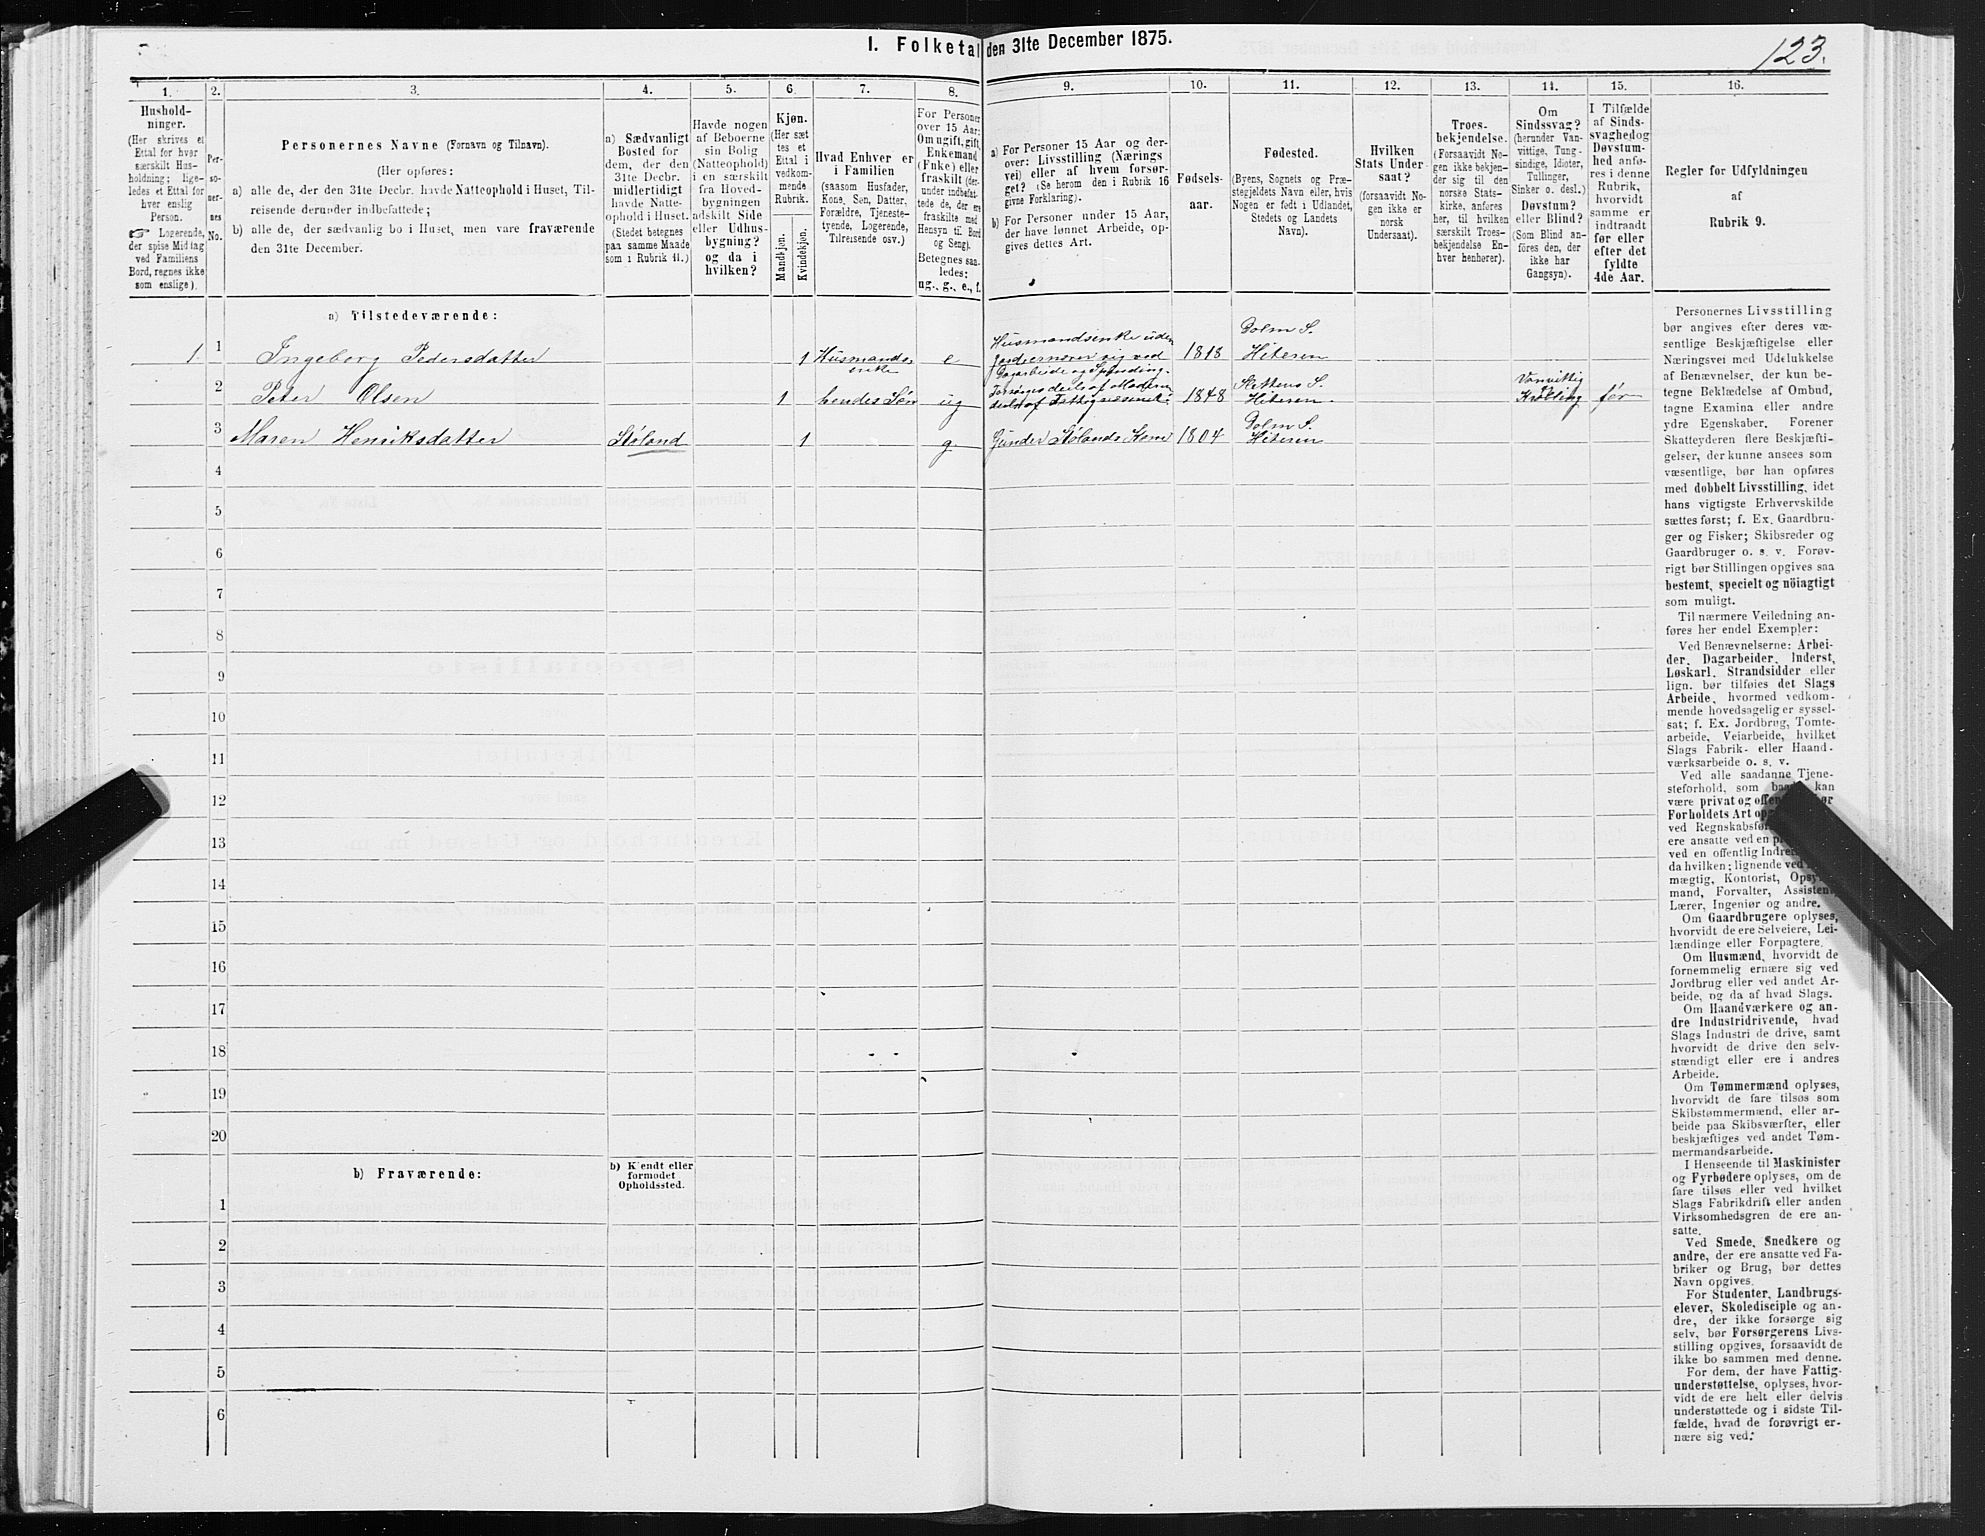 1. Folketal den 31te December 1875.
123.
1.
2.
3.
4.
5.
6.
7.
8.
9.
10.
11.
12.
13.
14.
15.
16.
Hushold-
ninger.
(Her skrives et
Ettal for hver
særskilt Hus-
holdning; lige-
ledes et Ettal for
hver enslig
Person.
☞ Logerende,
der spise Middag
ved Familiens
Bord, regnes ikke
som enslige).
Per-
so-
ner-
nes
No.
Personernes Navne (Fornavn og Tilnavn).
(Her opføres:
a) alle de, der den 31te Decbr. havde Natteophold i Huset, Til-
reisende derunder indbefattede;
b) alle de, der sædvanlig bo i Huset, men vare fraværende
den 31te December.
a) Sædvanligt
Bosted for
dem, der den
31te Decbr.
midlertidigt
havde Natte-
ophold i Huset.
(Stedet betegnes
paa samme Maade
som i Rubrik 11.)
Havde nogen
af Beboerne
sin Bolig
(Natteophold)
i en særskilt
fra Hoved-
bygningen
adskilt Side
eller Udhus-
bygning?
og da i
hvilken?
Kjøn.
(Her sæt
tes et
Ettal i
vedkom-
mende
Rubrik.
Mandkjøn.
Kvindekjøn.
Hvad Enhver er
i Familien
(saasom Husfader,
Kone, Søn, Datter,
Forældre, Tjeneste-
tyende, Logerende,
Tilreisende osv.)
For Personer
over 15 Aar:
Om ugift, gift,
Enkemand
(Enke) eller
fraskilt (der-
under indbefat-
tede de, der ere
fraskilte med
Hensyn til Bord
og Seng).
Betegnes saa-
ledes:
ug., g., e., f.
a) For Personer 15 Aar og der-
over: Livsstilling (Nærings
vei) eller af hvem forsør-
get? (Se herom den i Rubrik 16
givne Forklaring).
b) For Personer under 15 Aar,
der have lønnet Arbeide, op-
gives dettes Art.
Fødsels-
aar.
Fødested.
(Byens, Sognets og Præ-
stegjeldets Navn eller, hvis
Nogen er født i Udlandet,
Stedets og Landets
Navn).
Hvilken
Stats Under-
saat?
(forsaavidt No-
gen ikke er
norsk
Undersaat).
Troes-
bekjendelse.
(Forsaavidt No-
gen ikke bekjen-
der sig til den
norske Stats-
kirke, anføres
her, til hvilken
særskilt Troes-
bekjendelse En-
hver henhører).
Om
Sindssvag?
(herunder Van-
vittige, Tung-
sindige, Idioter,
Tullinger,
Sinker o. desl.)
Døvstum?
eller Blind?
(Som Blind an-
føres den, der
ikke har
Gangsyn).
I Tilfælde
af Sinds-
svaghed og
Døvstum-
hed anfø-
res i denne
Rubrik,
hvorvidt
samme er
indtraadt
før eller
efter det
fyldte
4de Aar.
Regler for Udfyldningen
af
Rubrik 9.
a) Tilstedeværende:
1 1 Ingeborg Pedersdatter 1 Husmands enke e Husmandsenke uden Jord ernærer sig ved Dagarbeide og Spinding 1818 Dolm S. Hiteren
2 Peter Olsen 1 hendes Søn ug Forsørges deels af Moderen deels af 1848 Hiteren Vanvittig Krøbling før
3 Maren Henriksdatter Støland 1 g Gunder Stølands Kone 1804 Dolm S. Hiteren
4
5
6
7
8
9
10
11
12
13
14
15
16
17
18
19
20
b) Fraværende:
b) Kjendt eller
formodet
Opholdssted.
1
2
3
4
5
6
Personernes Livsstilling
bør angives efter deres væ-
sentlige Beskjæftigelse eller
Næringsvei med Udelukkelse
af Benævnelser, der kun be-
tegne Beklædelse af Ombud,
tagne Examina eller andre
ydre Egenskaber. Forener
Skatteyderen flere Beskjæfti-
gelser, der kunne ansees som
væsentlige, bør han opføres
med dobbelt Livsstilling, idet
hans vigtigste Erhvervskilde
sættes først; f. Ex. Gaardbru-
ger og Fisker; Skibsreder og
Gaardbruger o. s. v. Forøv-
rigt bør Stillingen opgives saa
bestemt, specielt og nöiagtigt
som muligt.
Til nærmere Veiledning an-
føres her endel Exempler:
Ved Benævnelserne: Arbei-
der, Dagarbeider, Inderst,
Løskarl, Strandsidder eller
lign. bør tilføies det Slags
Arbeide, hvormed vedkom-
mende hovedsagelig er syssel-
sat; f. Ex. Jordbrug, Tomte-
arbeide, Veiarbeide, hvilket
Slags Fabrik- eller Haand-
værksarbeide o. s. v.
Ved alle saadanne Tjene-
steforhold, som kan
være privat og
Forholdets Art
ved
ere ansatte ved en
ved en offentlig
da hvilken; lignende ved
mægtig, Kontorist,
mand, Forvalter, Assistent,
Lærer, Ingeniør og andre.
Om Gaardbrugere oplyses,
hvorvidt de ere Selveiere, Lei-
lændinge eller Forpagtere.
Om Husmænd, hvorvidt de
fornemmelig ernære sig ved
Jordbrug eller ved andet Ar-
beide, og da af hvad Slags.
Om Haandværkere og an-
dre Industridrivende, hvad
Slags Industri de drive, samt
hvorvidt de drive den selv-
stændigt eller ere i andres
Arbeide.
Om Tømmermænd oplyses,
hvorvidt de fare tilsøs som
Skibstømmermænd, eller ar-
beide paa Skibsværfter, eller
beskjæftiges ved andet Tøm-
mermandsarbeide.
I Henseende til Maskinister
og Fyrbødere oplyses, om de
fare tilsøs eller ved hvilket
Slags Fabrikdrift eller anden
Virksomhedsgren de ere an-
satte.
Ved Smede, Snedkere og
andre, der ere ansatte ved Fa-
briker og Brug, bør dettes
Navn opgives.
For Studenter, Landbrugs-
elever, Skoledisciple og an-
dre, der ikke forsørge sig
selv, bør Forsørgerens Livs-
stilling opgives, forsaavidt de
ikke bo sammen med denne.
For dem, der have Fattig-
understøttelse, oplyses, hvor-
vidt de ere helt eller delvis
understøttede og i sidste Til-
fælde, hvad de forøvrigt er-
nære sig ved.